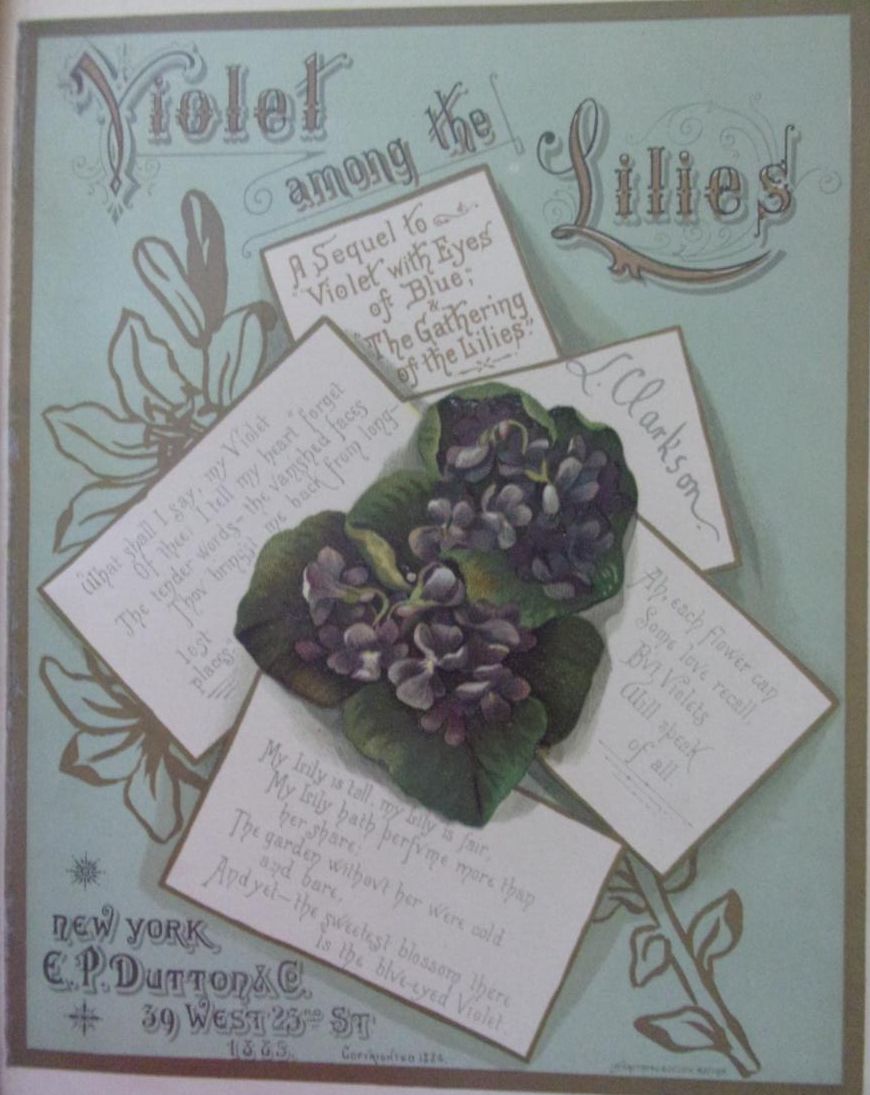 Violet
among the
Lilies
A Sequel to
"Violet with Eyes
of Blue;"
&
"The Gathering
of the Lilies."
L. Clarkson.
What shall I say, my Violet
Of thee? I tell my heart "forget
The tender words – the vanished faces
Thou bringst me back from long-
lost
places.
Ah, each flower can
Some love recall,
But Violets
Will speak
of all.
My Lily is tall, my Lily is fair,
My Lily hath perfume more than
her share;
The garden without her were cold
and bare,
And yet – the sweetest blossom there
Is the blue-eyed Violet.
NEW YORK,
E. P. DUTTON & CO.
39 WEST 23RD ST
1885.
COPYRIGHTED 1884.